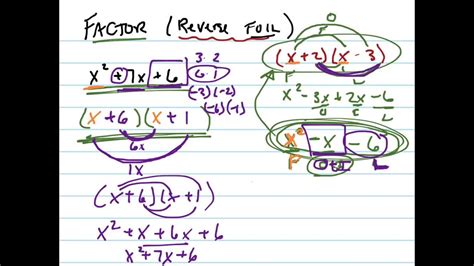 FACTOR (Reverse FOIL)
x² + 7x + 6
3·2
6·1
(-3)(-2)
(-6)(-1)
(x + 6)(x + 1)
6x
1x
(x + 6)(x + 1)
x² + x + 6x + 6
x² + 7x + 6
O
(x + 2)(x - 3)
F
I
L
x² - 3x + 2x - 6
F O I L
x² - x - 6
F
O+I
L